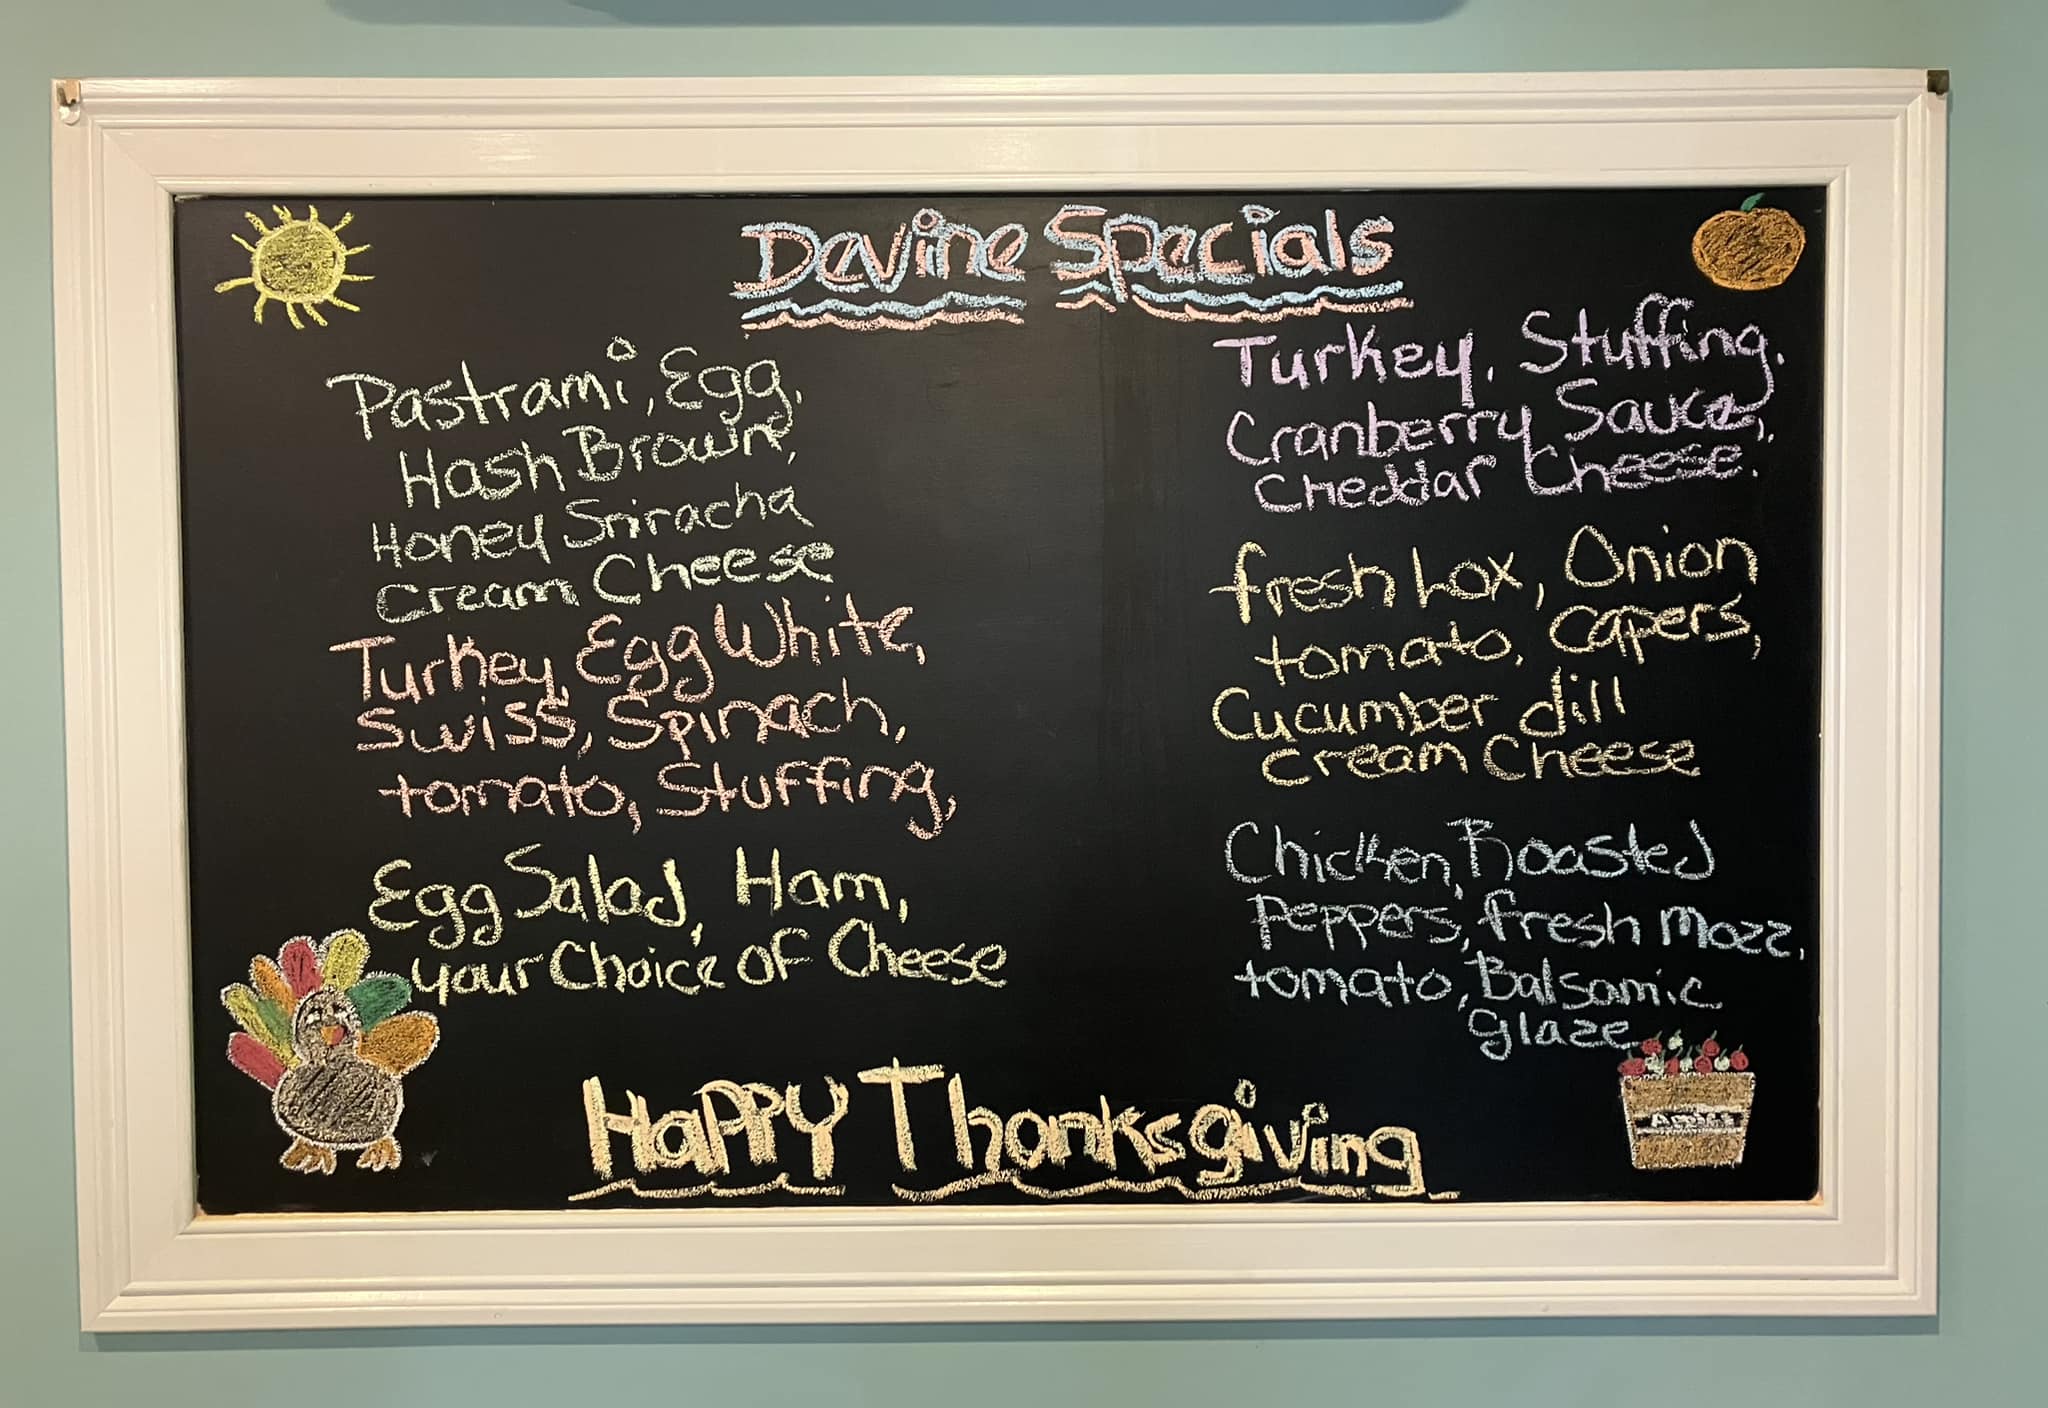 Devine Specials
Pastrami, Egg,
Hash Brown,
Honey Sriracha
Cream Cheese
Turkey, Egg White,
Swiss, Spinach,
tomato, Stuffing,
Egg Salad, Ham,
your Choice of Cheese
Turkey, Stuffing,
Cranberry Sauce,
Cheddar Cheese.
fresh Lox, Onion
tomato, Capers,
Cucumber dill
Cream Cheese
Chicken, Roasted
Peppers, fresh Mozz,
tomato, Balsamic
glaze
Happy Thanksgiving